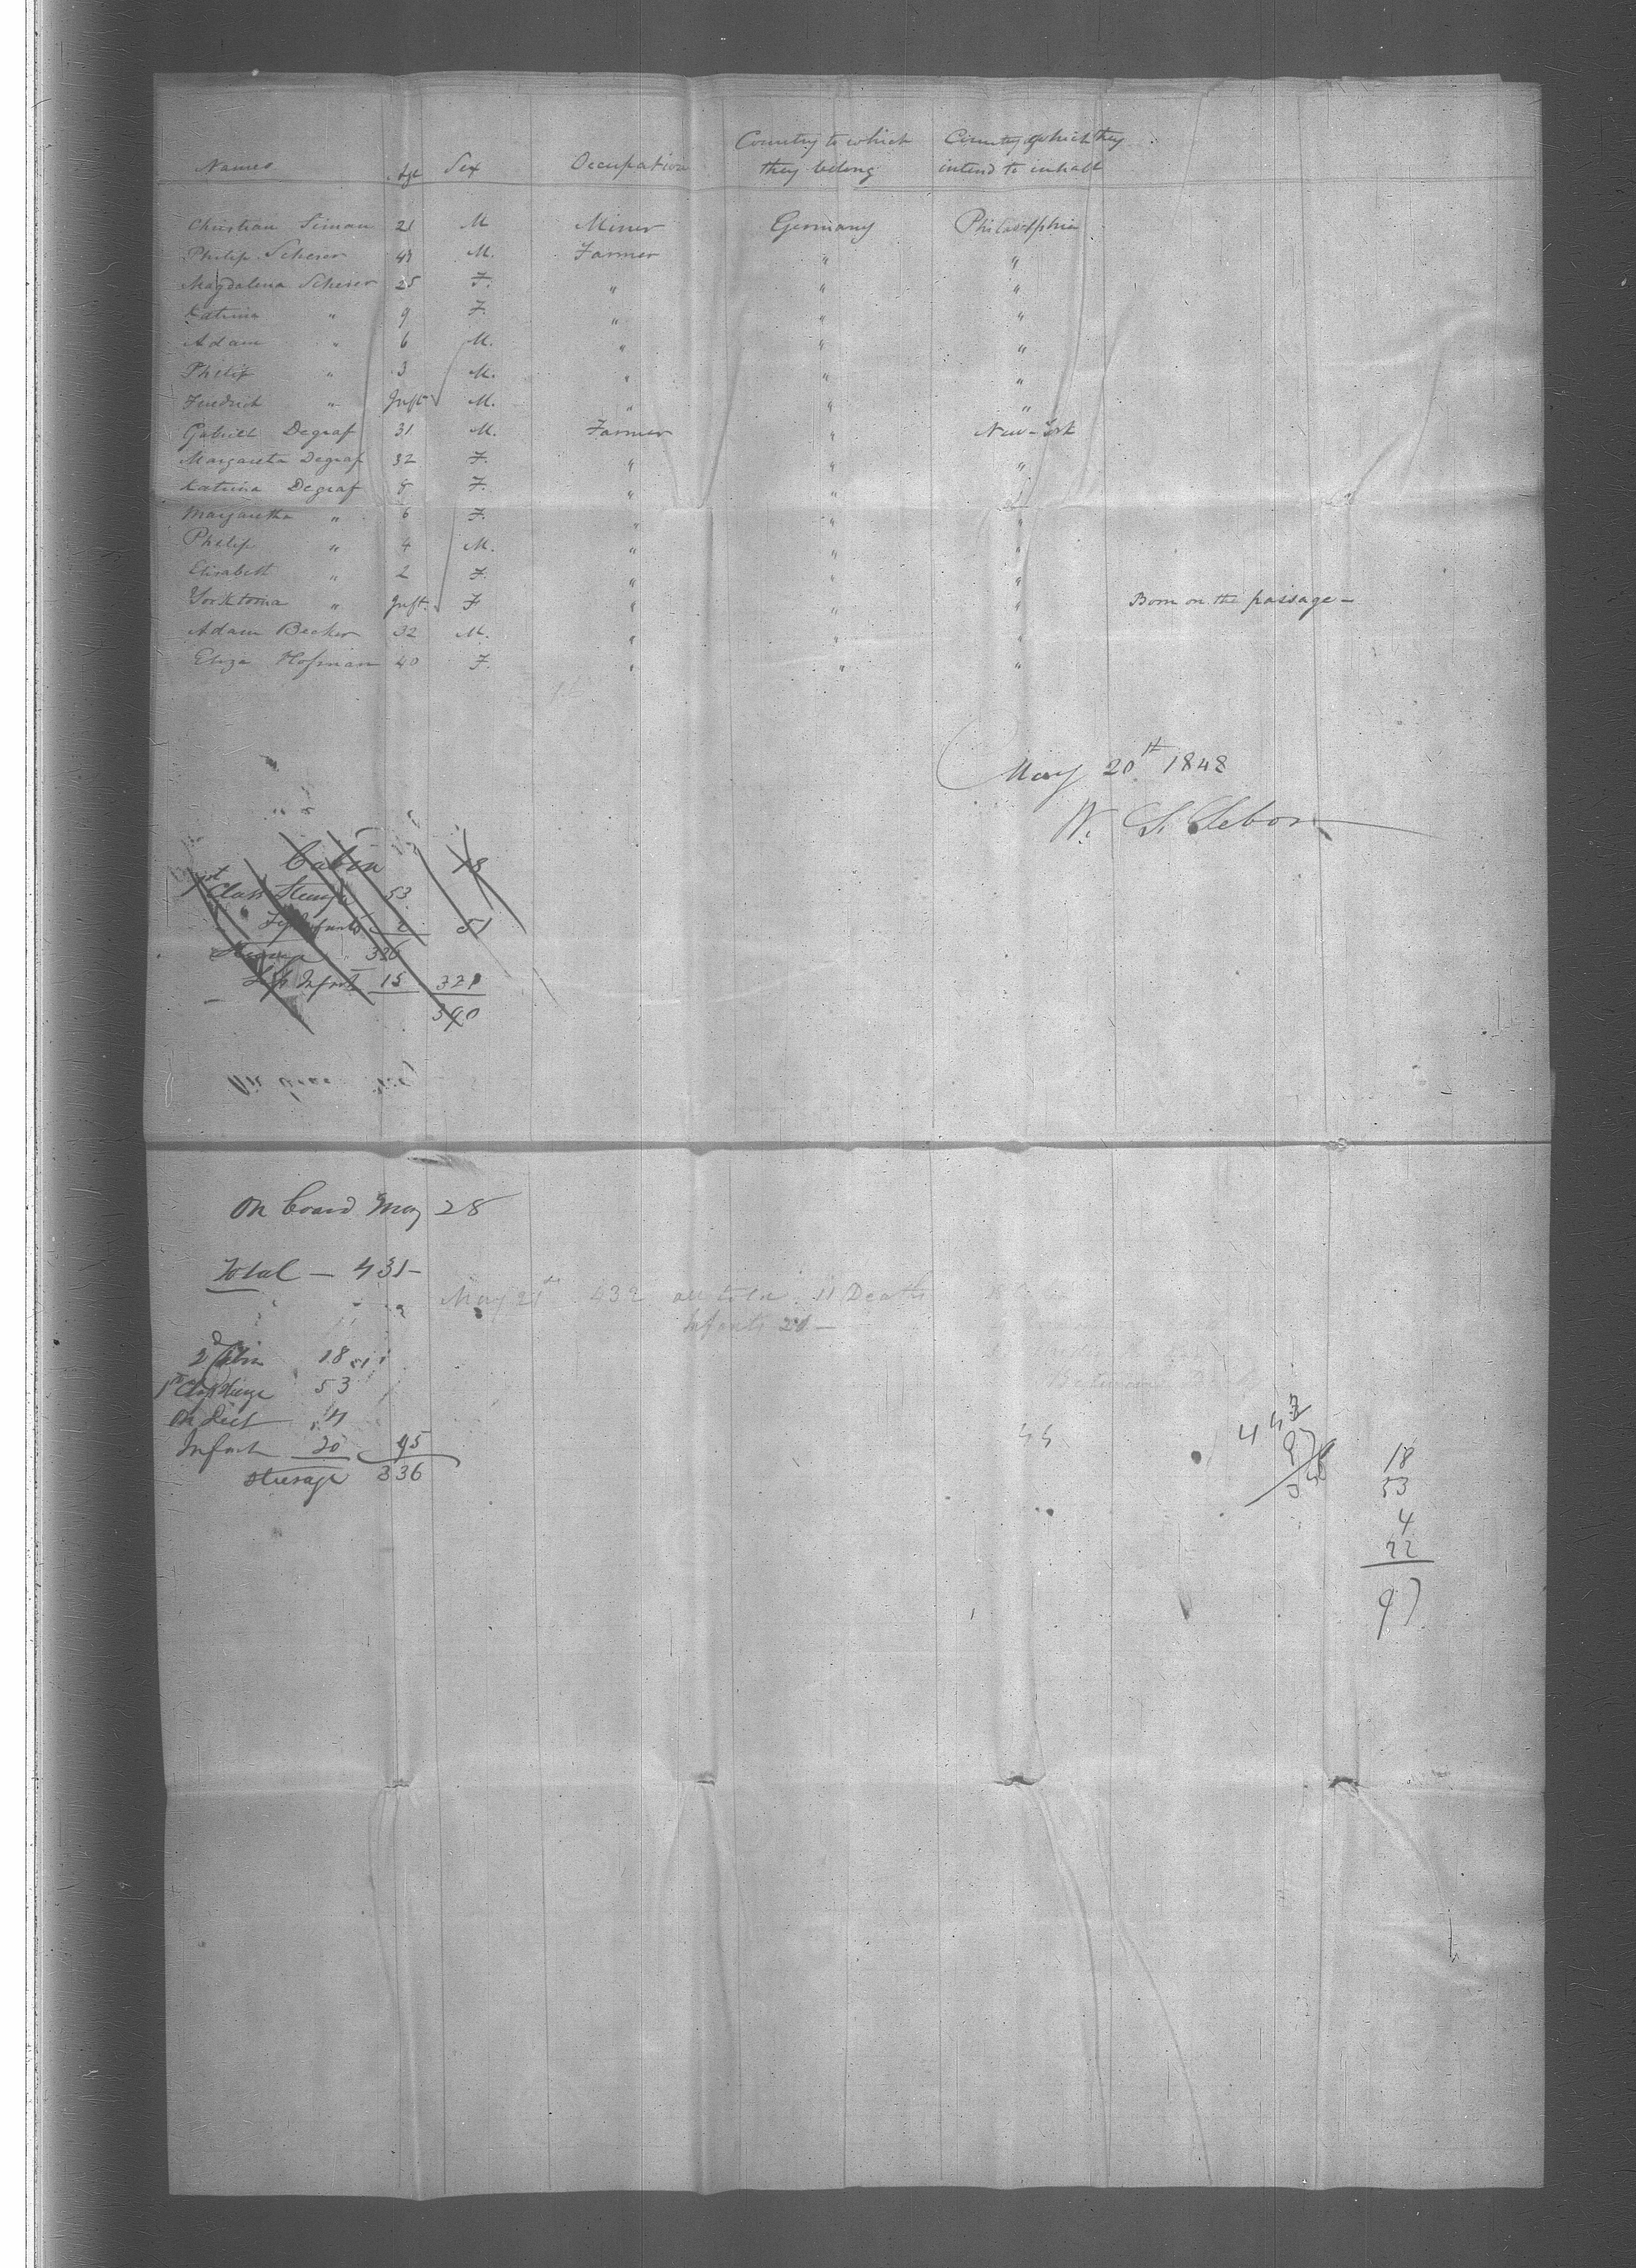 Names Age Sex Occupation Country to which they belong Country which they intend to inhabit
Christian Siman 21 M Miner Germany Philadelphia
Philip Scherer 49 M. Farmer " "
Magdalena Scherer 25 F. " " "
Katrina " 9 F. " " "
Adam " 6 M. " " "
Philip " 3 M. " " "
Friedrich " Inft M. " " "
Gabriel Degraf 31 M. Farmer " New-York
Margareta Degraf 32 F. " " "
Katrina Degraf 8 F. " " "
Margaretha " 6 F. " " "
Philip " 4 M. " " "
Elisabett " 2 F. " " "
Yorktoma " Inft. F " " " Born on the passage –
Adam Becker 32 M. " " "
Eliza Hofman 40 F. " " "
May 20th 1848
W. S. Sebor
Cabin 18
1st Class Steerage 53
Infants 2 51
Steerage 336
Infant 15 321
390
On board May 28
Total – 431 –
May 21st 432 all told. 11 Deaths
Infants 21 –
2d Cabin 18
1st Class Steerge 53
On deck 4
Infant 20 95
Steerage 336
44
443
97
346
18
53
4
22
97